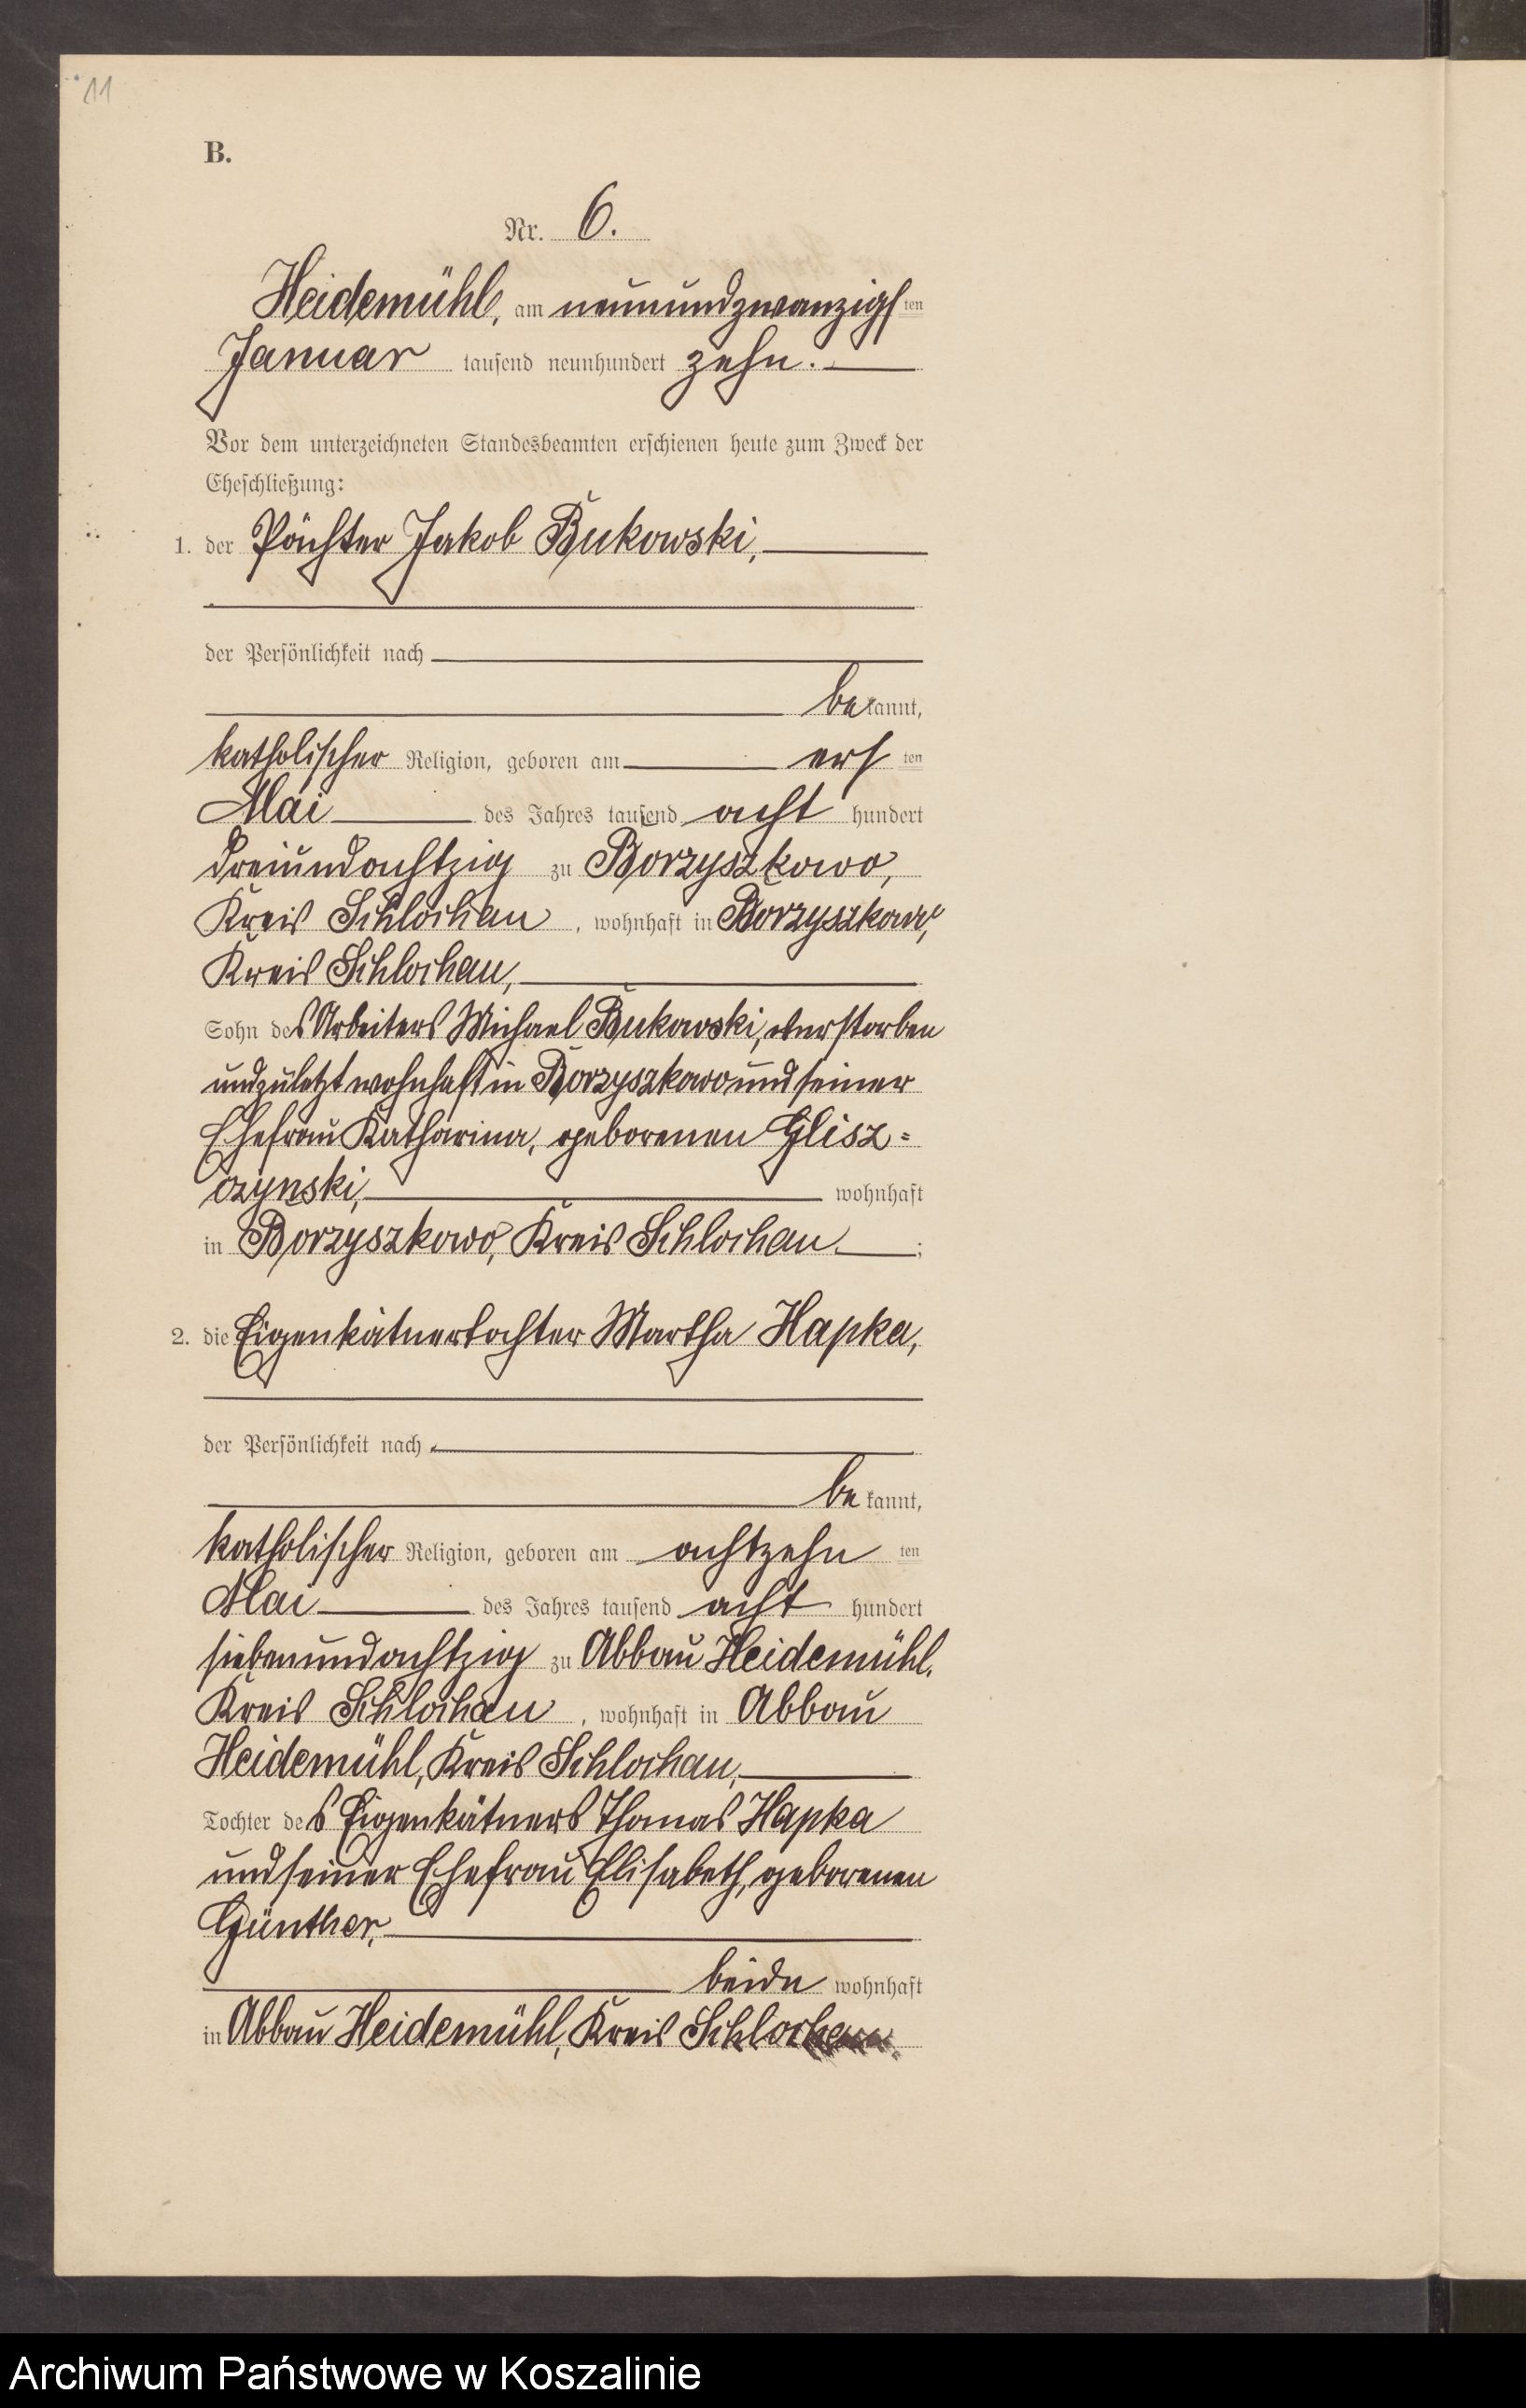 11
B.
Nr. 6.
Heidemühl, am neunundzwanzigsten
Januar tausend neunhundert zehn.
Vor dem unterzeichneten Standesbeamten erschienen heute zum Zweck der
Eheschließung:
1. der Pächter Jakob Bukowski,
der Persönlichkeit nach
bekannt,
katholischer Religion, geboren am ersten
Mai des Jahres tausend acht hundert
dreiundachtzig zu Borzyszkowo,
Kreis Schlochau, wohnhaft in Borzyszkowo,
Kreis Schlochau,
Sohn des Arbeiters Michael Bukowski, verstorben
und zuletzt wohnhaft in Borzyszkowo und seiner
Ehefrau Katharina, geborenen Glisz=
czynski, wohnhaft
in Borzyszkowo, Kreis Schlochau;
2. die Eigenkätnertochter Martha Hapka,
der Persönlichkeit nach
bekannt,
katholischer Religion, geboren am achtzehnten
Mai des Jahres tausend acht hundert
siebenundachtzig zu Abbau Heidemühl,
Kreis Schlochau, wohnhaft in Abbau
Heidemühl, Kreis Schlochau,
Tochter des Eigenkätners Thomas Hapka
und seiner Ehefrau Elisabeth, geborenen
Günther,
beide wohnhaft
in Abbau Heidemühl, Kreis Schlochau.
Archiwum Państwowe w Koszalinie